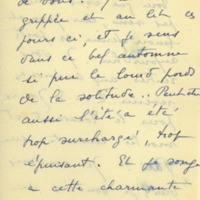 de vous.
grippée et au lit ces
jours ci, et je sens
dans ce bel automne
si pur le lourd poids
de la solitude.. Peut être
aussi l'été a été
trop surchargé, trop
épuisant. Et je songe
à cette charmante